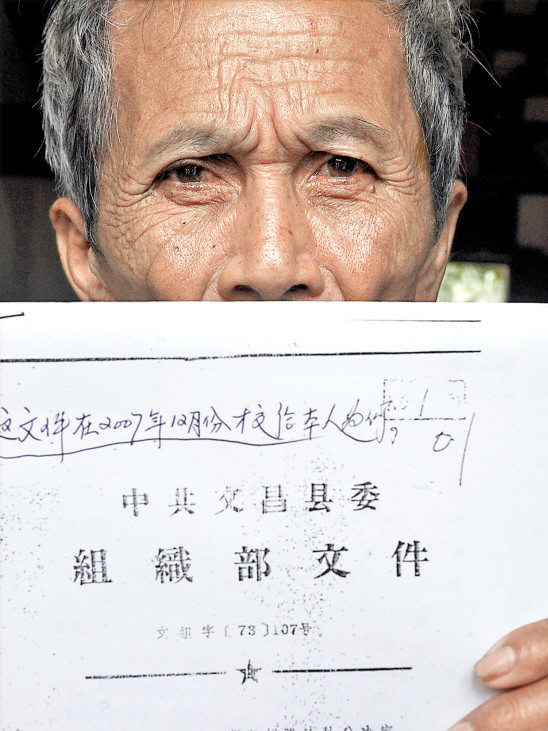 这文件在2007年12月份才交给本人为什
中共文昌县委
組織部文件
文組字〔73〕107号